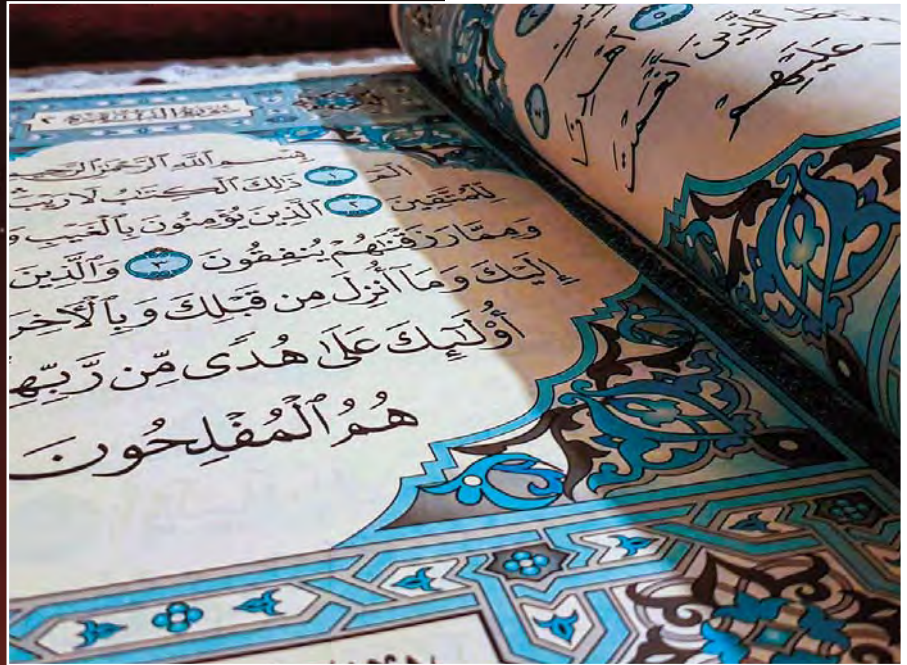 ٱهْدِنَا
ٱلَّذِينَ أَنْعَمْتَ
عَلَيْهِمْ
بِسْمِ ٱللَّهِ ٱلرَّحْمَٰنِ ٱلرَّحِيمِ
الٓمٓ ١ ذَٰلِكَ ٱلْكِتَٰبُ لَا رَيْبَ
لِّلْمُتَّقِينَ ٢ ٱلَّذِينَ يُؤْمِنُونَ بِٱلْغَيْبِ وَ
وَمِمَّا رَزَقْنَٰهُمْ يُنفِقُونَ ٣ وَٱلَّذِينَ
إِلَيْكَ وَمَآ أُنزِلَ مِن قَبْلِكَ وَبِٱلْأٓخِرَ
أُو۟لَٰٓئِكَ عَلَىٰ هُدًى مِّن رَّبِّهِ
هُمُ ٱلْمُفْلِحُونَ